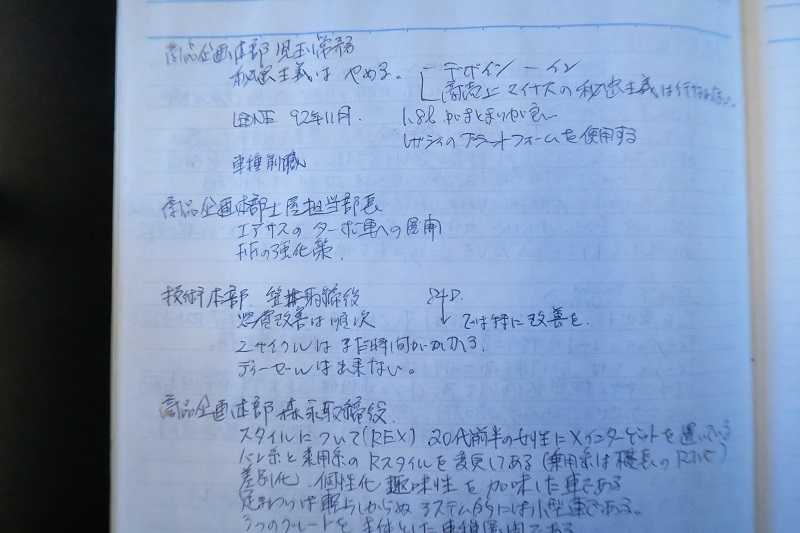 商品企画本部 児玉常務
秘密主義は やめる。 デザイン イン
商売上マイナスの秘密主義は行なわない。
92年11月. 1.8lがまとまりが良い
レガシィのプラットフォームを使用する
車種削減
商品企画本部土屋担当部長
エアサスのターボ車への展開
FFの強化策.
技術本部 取締役
燃費改善は順次 では特に改善を.
2サイクルはまだ時間がかかる.
ディーゼルは出来ない。
商品企画本部 森永取締役.
スタイルについて(REX) 20代前半の女性にメインターゲットを置いている
バン系と乗用系のRスタイルを変更してある(乗用系は
差別化、個性化 趣味性を加味した車である
足まわりは軽らしからぬ システム的には小型車である。
3つのグレードを主体とした車種展開である